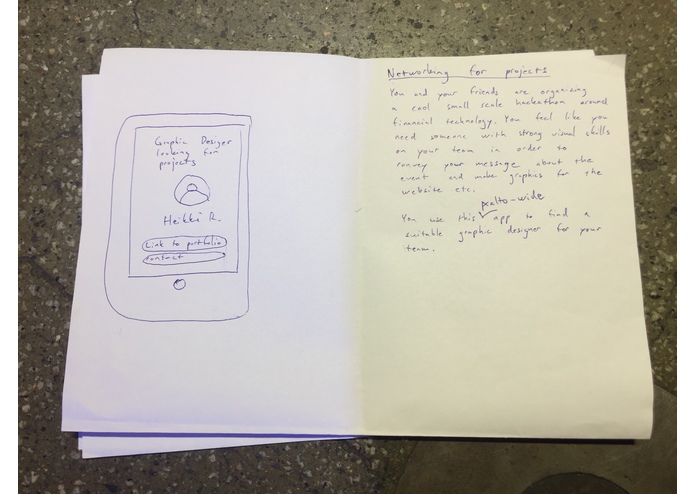 Graphic Desiger
looking for
projects
Heikki R.
Link to portfolio
contact
Networking for projects
You and your friends are organising
a cool small scale hackathon around
financial technology. You feel like you
need someone with strong visual skills
on your team in order to
convey your message about the
event and make graphics for the
website etc.
aalto-wide
You use this app to find a
suitable graphic designer for your
team.